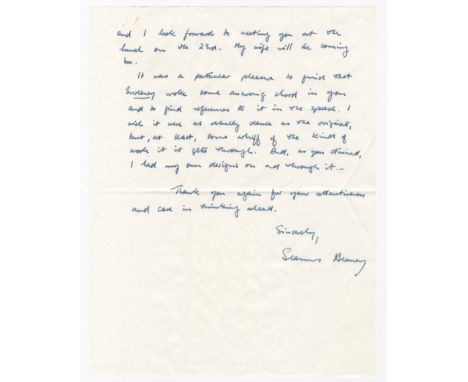 and I look forward to meeting you at the
lunch on the 23rd. My wife will be coming
too.
It was a particular pleasure to find that
Sweeney woke some answering chord in you
and to find references to it in the speech. I
wish it were as verbally dense as the original,
but, at least, some whiff of the kind of
work it is gets through. And, as you divined,
I had my own designs on and through it...
Thank you again for your attentiveness
and care in thinking ahead.
Sincerely,
Seamus Heaney